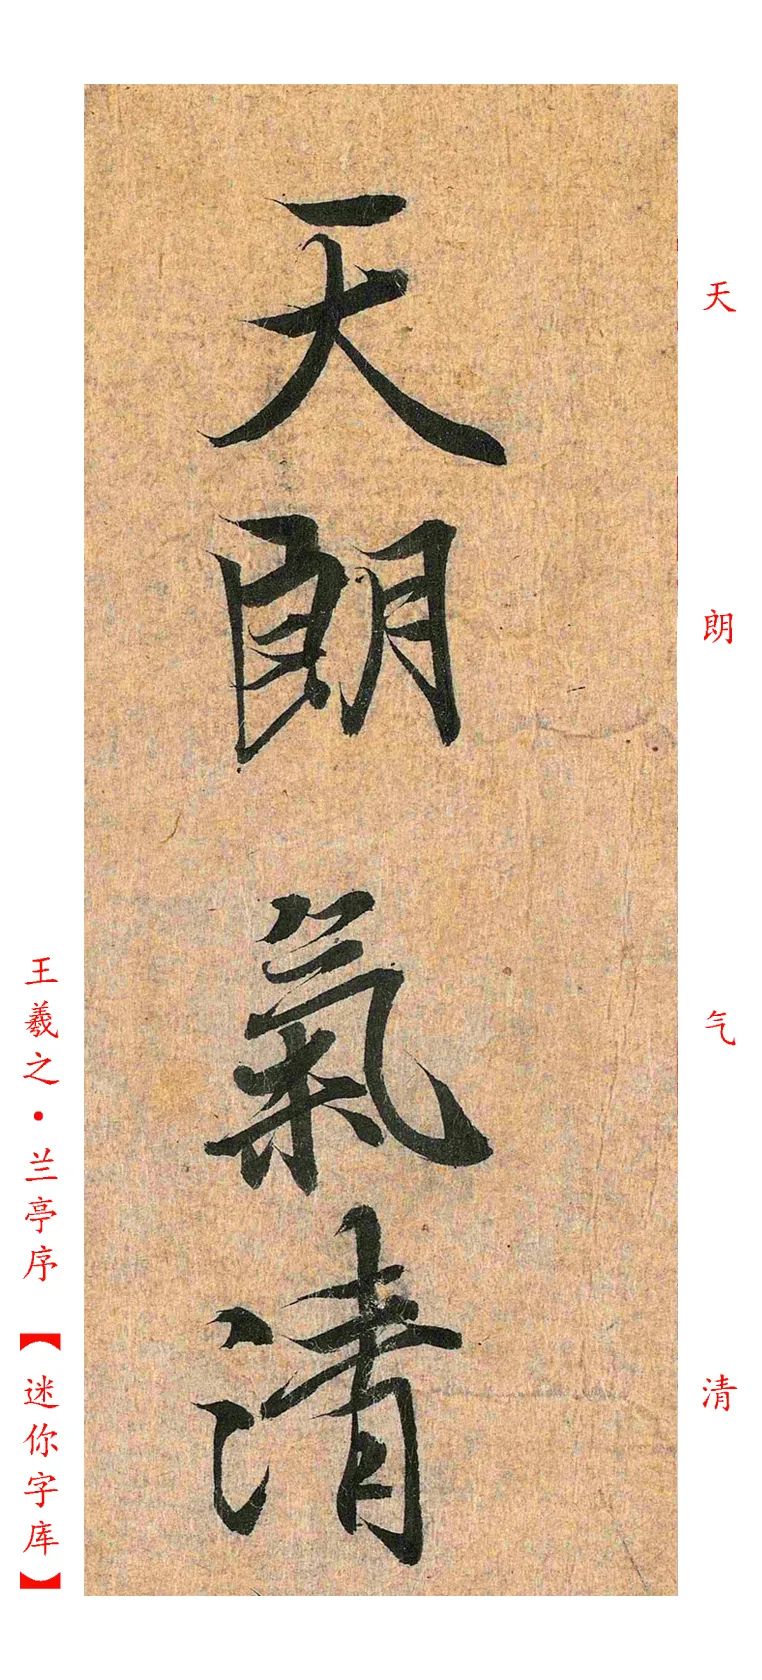 天朗氣清
天朗气清
王羲之·兰亭序【迷你字库】